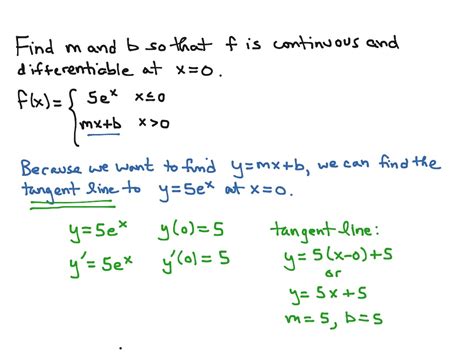 Find m and b so that f is continuous and
differentiable at x=0.
f(x)= { 5eˣ x≤0
mx+b x>0
Because we want to find y=mx+b, we can find the
tangent line to y=5eˣ at x=0.
y=5eˣ y(0)=5
y'=5eˣ y'(0)=5
tangent line:
y=5(x-0)+5
or
y=5x+5
m=5, b=5